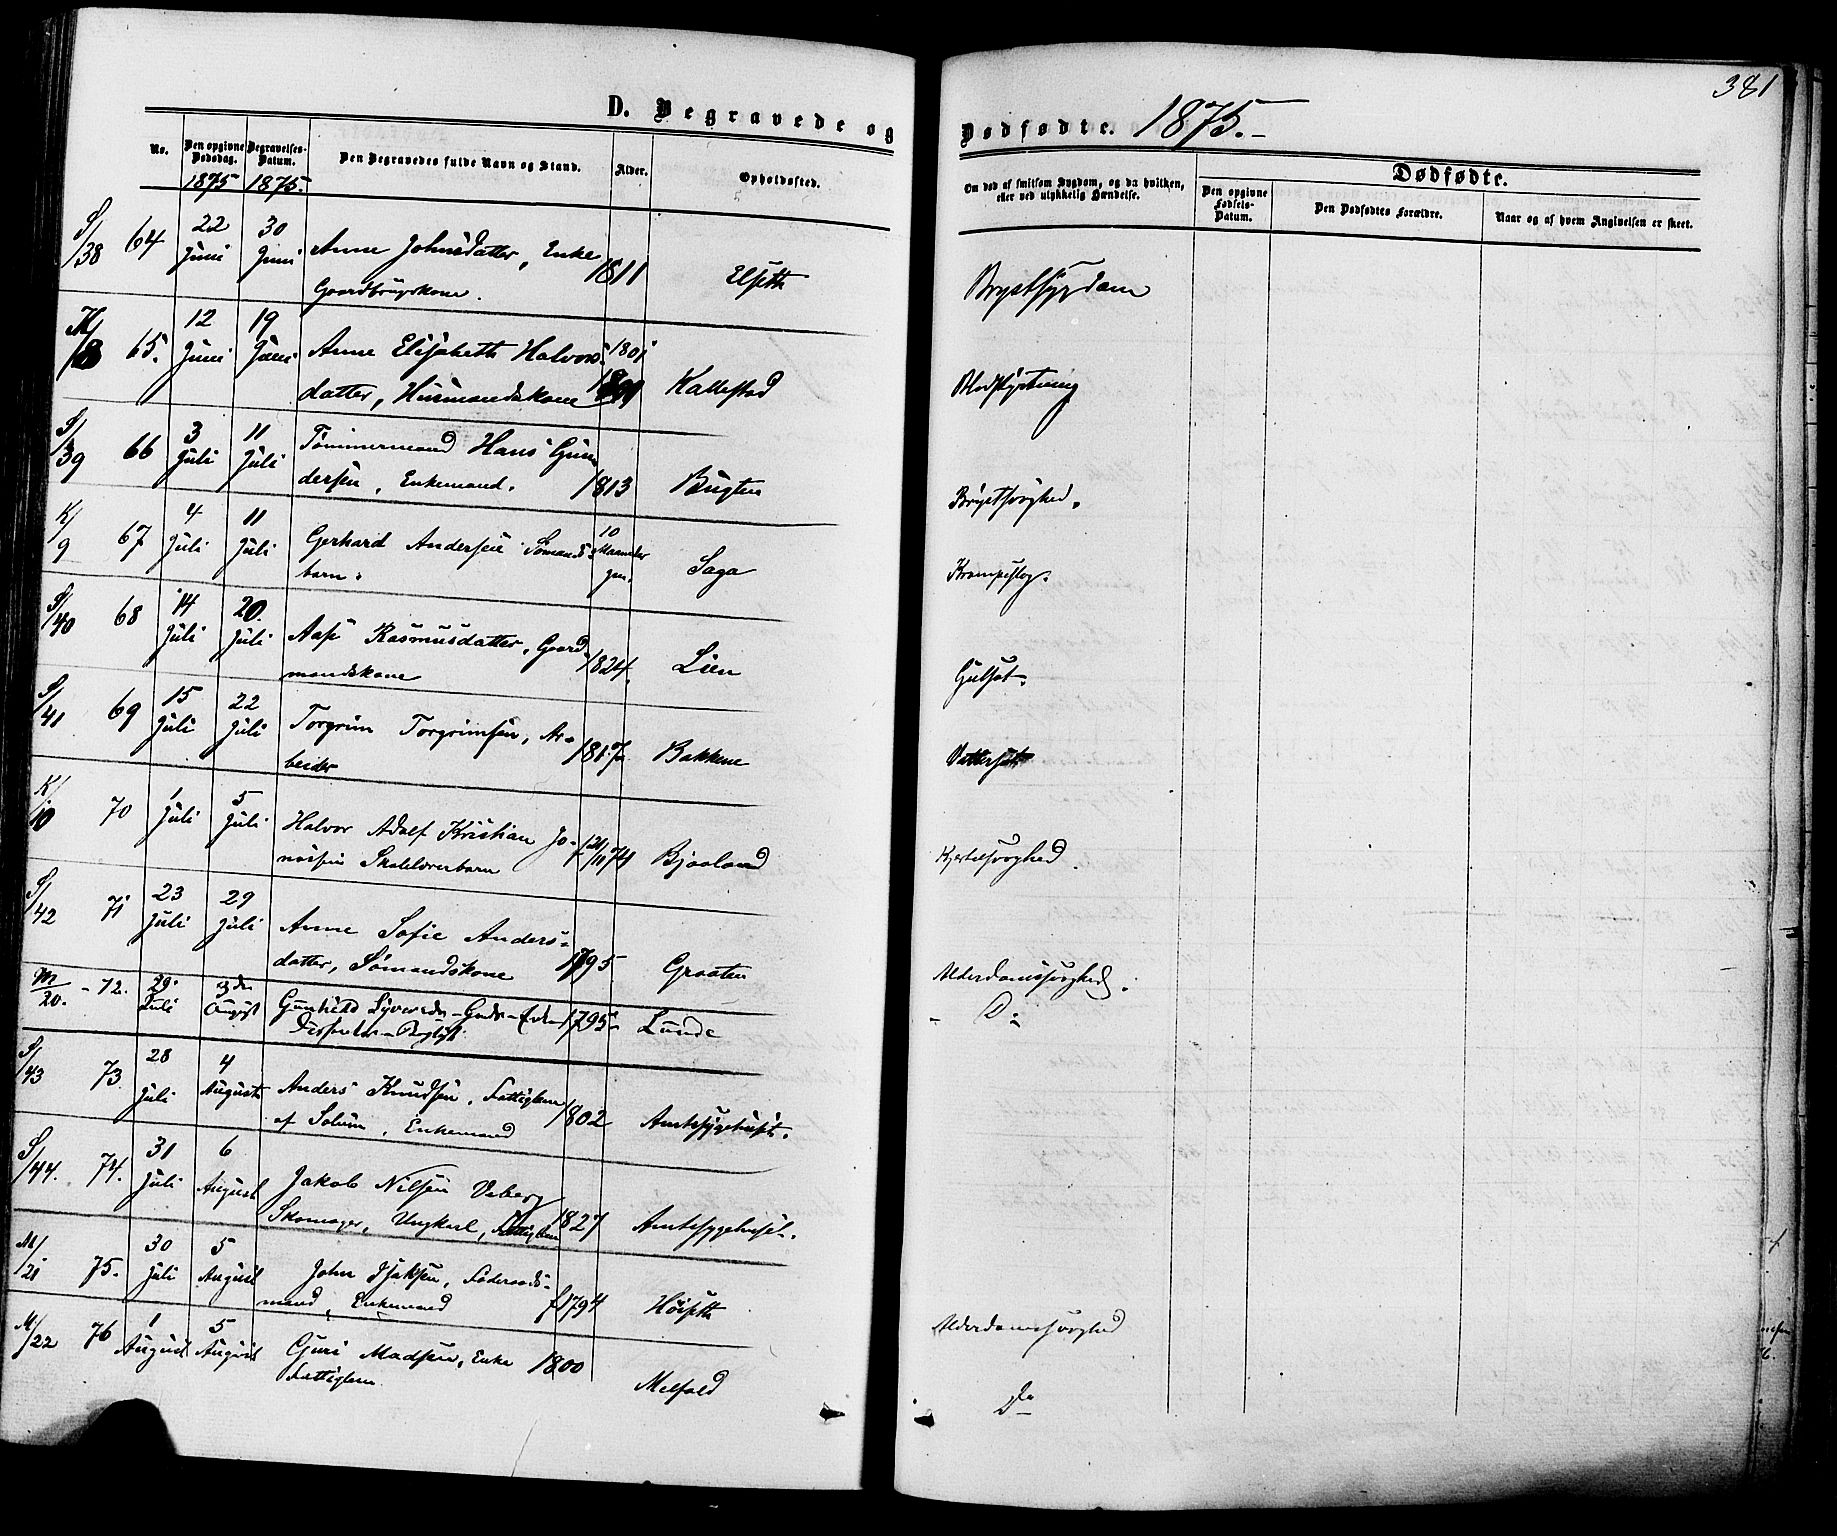 D. Begravede og
No.
Den opgivne Dødsdag.
Begravelses-Datum.
Den Begravedes fulde Navn og Stand.
Alder.
Opholdssted.
1875 1875.
S/38 64 22 Juni 30 Juni Anne Johnsdatter, Enke
Gaardbrugskone. 1811 Elseth
K/8 65. 12 Juni 19 Juni Anne Elisabeth Halvors-
datter, Husmandskone 1801 Kallestad
S/39 66 3 Juli 11 Juli Tømmermand Hans Gun
dersen, Enkemand. 1813 Bugten
K/9 67 4 Juli 11 Juli Gerhard Andersen Sømands-
barn. 10 Maaneder gm. Saga
S/40 68 14 Juli 20. Juli Aase Rasmusdatter, Gaard
mandskone 1824. Lien
S/41 69 15 Juli 22 Juli Torgrim Torgrimsen, Ar-
beider 1817 Bakkene
K/10 70 1 Juli 5 Juli Halvor Adolf Kristian Jo-
nassen Skolelærerbarn 74 Bjaaland
S/42 71 23 Juli 29 Juli Anne Sofie Anders-
datter, Sømandskone 1795 Graaten
M/20. - 72. 29. Juli 3de August Gunhild Syversdr
1795 Lunde
S/43 73 28 Juli 4 August Anders Knudsen, Fattiglem
af Solum, Enkemand 1802 Amtssygehuset.
S/44. 74. 31 Juli 6 August Jakob Nilsen Viberg
Skomager, Ungkarl, Fattiglem 1827 Amtssygehuset.
M/21 75. 30 Juli 5 August John Isaksen, Føderaads-
mand, Enkemand f 1794 Høiseth
M/22 76 1 August 5 August Guri Madsen, Enke
Fattiglem 1800 Melfald
381
Dødfødte. 1875.-
Om død af smitsom Sygdom, og da hvilken,
eller ved ulykkelig Hændelse.
Dødfødte.
Den opgivne Fødsels-Datum.
Den Dødfødtes Forældre.
Naar og af hvem Angivelsen er skeet.
Brystsygdom
Blodstyrtning
Brystsvaghed.
Krampeslag.
Gulsot.
Vattersot
Kjertelsvaghed.
Alderdomssvaghed.
- Do
Alderdomssvaghed
Do